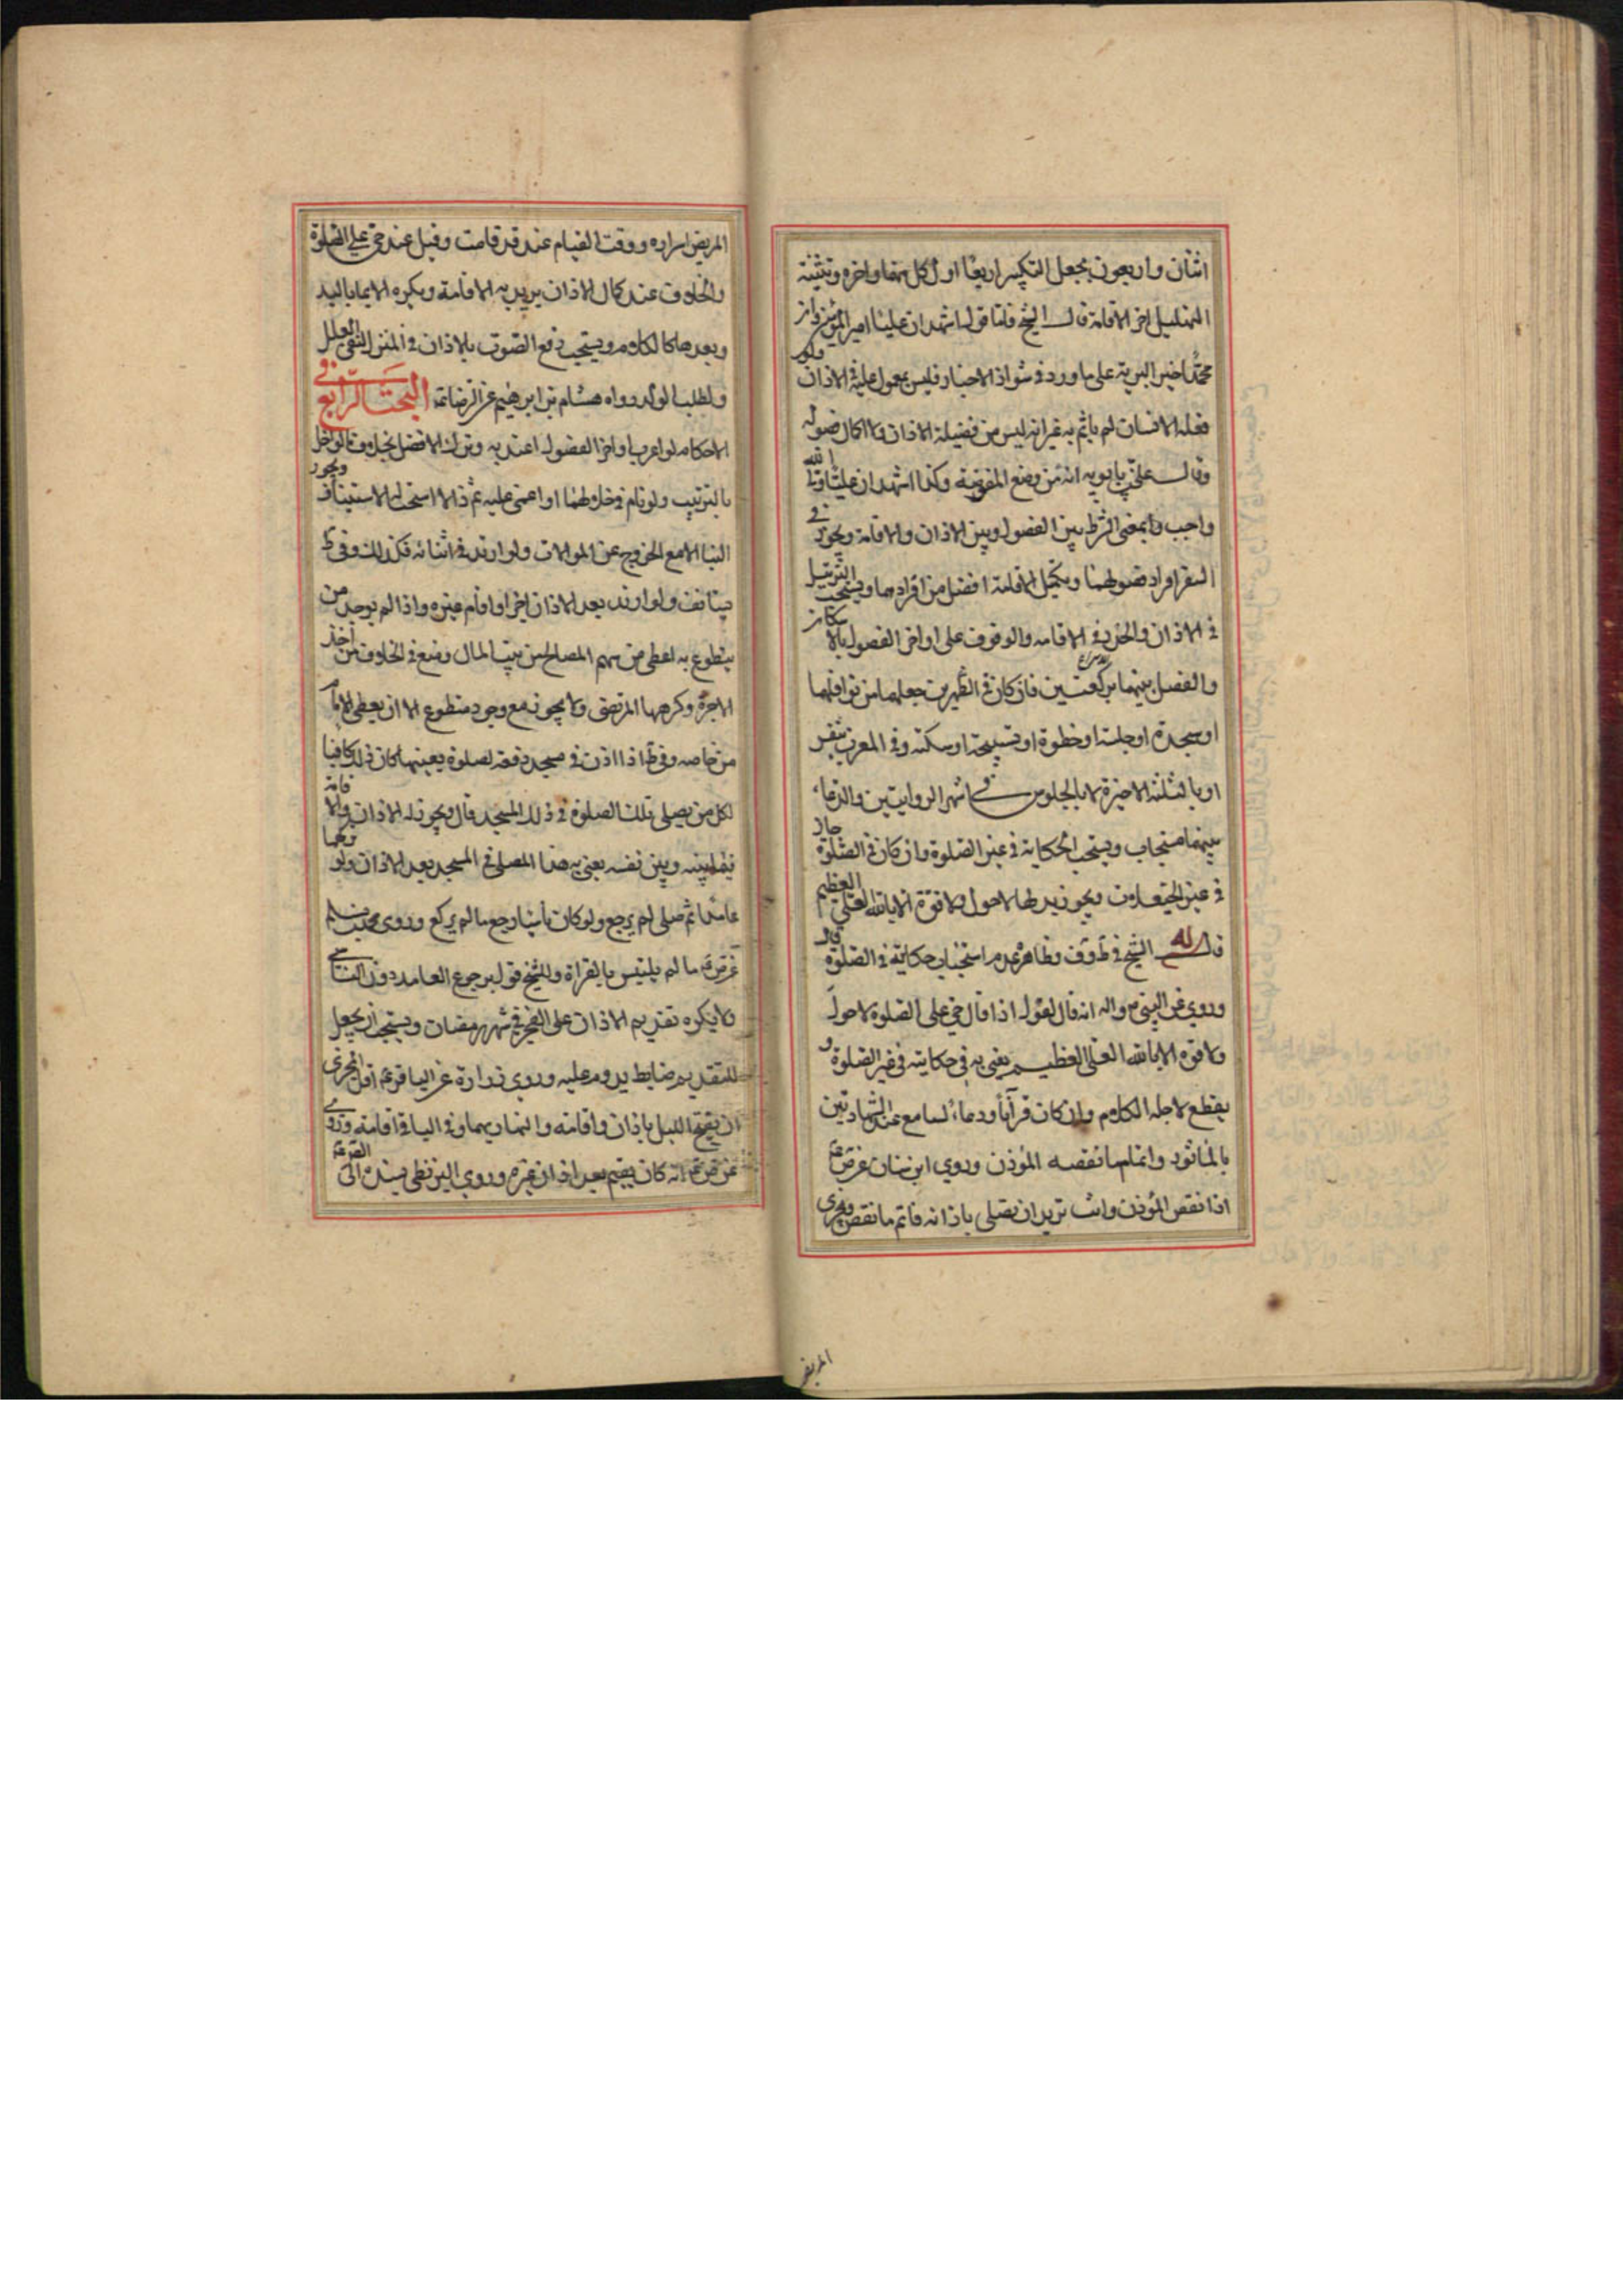 اثنان واربعون بجعل التكبير اربعا اول كل منهما واخره وتثنية
التهليل اخر الاقامة قال الشيخ فاما قول اشهد ان عليا امير المؤمنين وان
محمدا خير البرية على ما ورد في شواذ الاخبار فليس بمعول عليه في الاذان ولو
فعله الانسان لم ياثم به غير انه ليس من فضيلة الاذان ولا كمال فصوله
وقال علي بن بابويه انه من وضع المفوضة وكذا اشهد ان عليا ولي الله
واجب وبمعنى الشرط بين الفصول وبين الاذان والاقامة ويجوز في
السفر افراد فصولهما وتكميل الاقامة افضل من افرادهما ويستحب الترتيل
في الاذان والحدر في الاقامه والوقوف على اواخر الفصول بالاسكان
والفصل بينهما بركعتين فان كان في الظهرين جعلهما من نوافلهما
او سجدة او جلسة او خطوة او تسبيحة او سكتة وفي المغرب بنفس
او بالثلثة الاخيرة لا بالجلوس في اشهر الروايتين والدعاء
بينهما مستجاب ويستحب الحكاية في غير الصلوة وان كان في الصلوة جاز
في غير الحيعلات ويجوز بدلها لا حول ولا قوة الا بالله العلي العظيم
قاله الشيخ في ط وف وظاهره عدم استحباب حكايته في الصلوة قال
وروي عن النبي ص واله انه قال يقول اذا قال حي على الصلوة لا حول
ولا قوة الا بالله العلي العظيم يعني به في حكايته في غير الصلوة و
يقطع لاجله الكلام وان كان قرآنا ودعاء السامع عند الشهادتين
بالماثور واتمام ما نقصه المؤذن وروي ابن سنان عن ص ع
اذا نقص المؤذن وانت تريد ان تصلي باذانه فاتم ما نقص ويجزي
المريض
المريض اسراره ووقت القيام عند قد قامت وقيل عند حي على الصلوة
والخلاف عند كمال الاذان يريد به الاقامة ويكره الايماء باليد
وبعدها كالكلام ويستحب رفع الصوت بالاذان في المنزل لنفي العلل
ولطلب الولد رواه هشام بن ابرهيم عن الرضا ع البحث الرابع في
الاحكام لو اعرب اواخر الفصول اعتد به وترك الافضل بخلاف ما لو اخل
بالترتيب ولو نام في خلالهما او اغمي عليه ثم زالا استحب الاستيناف ويجوز
البنا الا مع الخروج عن الموالات ولو ارتد في اثنائه فكذلك وفي ط
يستانف ولو ارتد بعد الاذان اجزا واقام غيره واذا لم يوجد من
يتطوع به اعطي من سهم المصالح من بيت المال ومنع في الخلاف من اخذ
الاجرة وكرهها المرتضى ولا يجوز مع وجود متطوع الا ان يعطي الامام
من خاصه وفي ط اذا اذن في مسجد دفعة لصلوة بعينها كان ذلك كافيا
لكل من يصلي تلك الصلوة في ذلك المسجد قال ويجوز له الاذان والاقامة
فيما بينه وبين نفسه يعني به هذا المصلي في المسجد بعد الاذان ولو تركهما
عامدا ثم صلى لم يرجع ولو كان ناسيا رجع ما لم يركع وروى محمد بن مسلم
عن ص ع ما لم يلتبس بالقراة وللشيخ قول برجوع العامد دون الناسي
ولا يكره تقديم الاذان على الفجر في شهر رمضان ويستحب ان يجعل
للتقديم ضابط يدوم عليه وروي زرارة عن الباقر ع اقل المجزي
ان يفتتح الليل باذان واقامة والنهار بهما وفي الباقي اقامة وروي
عن ص ع انه كان يقيم بعد اذان غيره وروي البزنطي بسنده الى